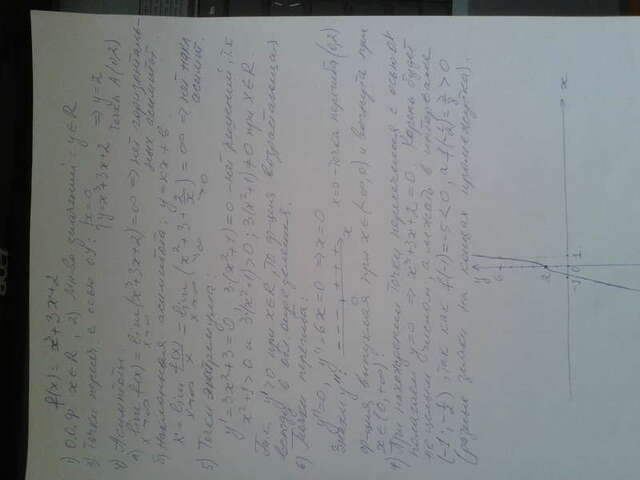 f(x) = x³+3x+2
1) О.О.Ф. x∈R, 2) Мн-во значений: y∈R
3) Точки перес. с осью оу: {x=0
{y=x³+3x+2 ⇒ y=2
точка A(0,2)
4) Асимптоты
а) lim f(x) = lim (x³+3x+2) = ∞ ⇒ нет горизонталь-
x→∞ x→∞ ных асимптот
б) Наклонная асимптота: y=kx+b
k = lim f(x)/x = lim (x²+3+2/x) = ∞ ⇒ нет накл.
x→∞ x→∞ асимпт.
5) Точки экстремума:
y'=3x²+3=0, 3(x²+1)=0 - нет решений, т.к
x²+1>0 и 3(x²+1)>0, 3(x²+1)≠0 при x∈R
y'>0 при x∈R, то ф-ция возрастающая
всюду в обл. определения.
6) Точки перегиба:
y''=0, y''=6x=0 ⇒ x=0
Знаки y'': - - - + + + x x=0 - точка перегиба (0,2)
ф-ция выпуклая при x∈(-∞,0) и вогнута при
x∈(0,+∞)
7) При нахождении точки пересечения с осью ох
полагаем y=0 ⇒ x³+3x+2=0. Корень будет
не целым числом, а лежать в интервале
(-1, -1/2), так как f(-1)=-5<0, а f(-1/2)=3/8>0
(разные знаки на концах промежутка).
y
6
2
-1 1
x